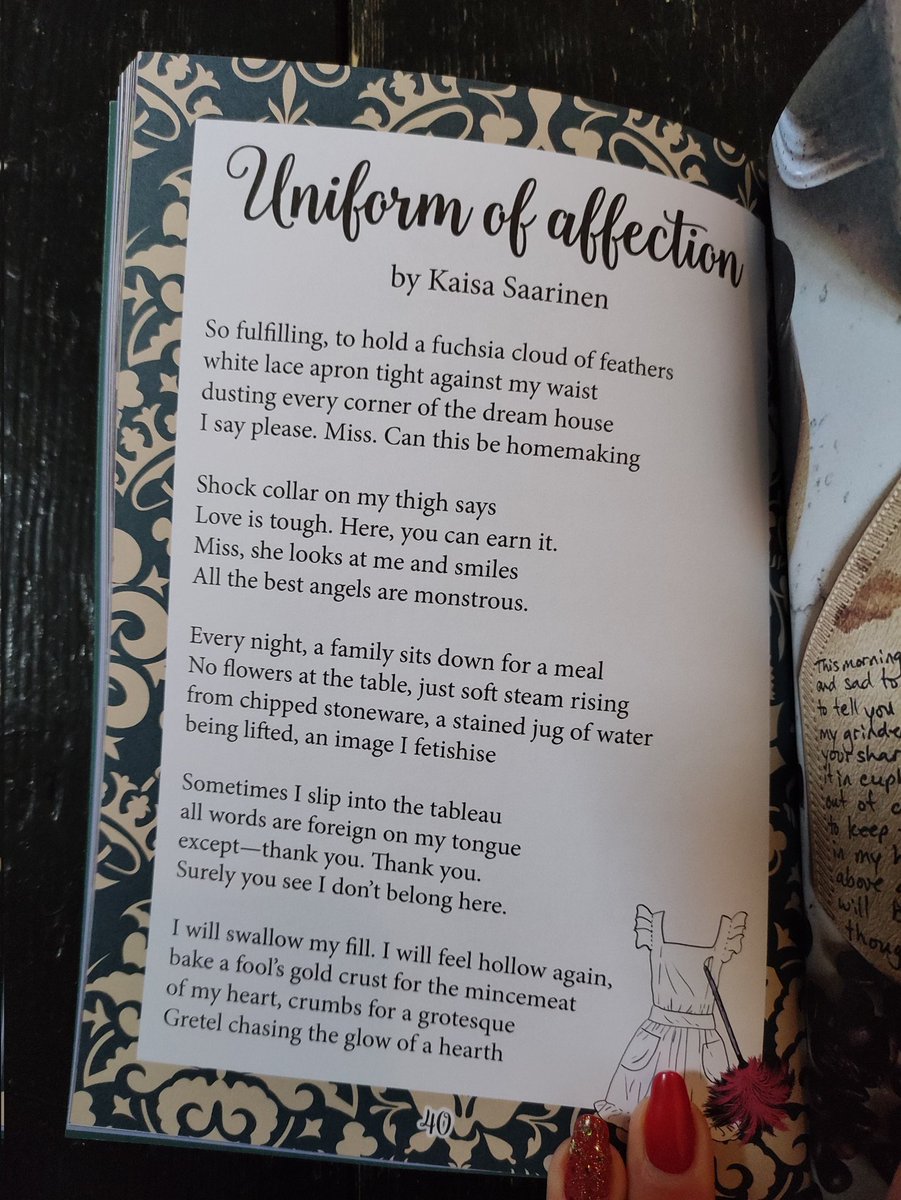 Uniform of affection
by Kaisa Saarinen
So fulfilling, to hold a fuchsia cloud of feathers
white lace apron tight against my waist
dusting every corner of the dream house
I say please. Miss. Can this be homemaking
Shock collar on my thigh says
Love is tough. Here, you can earn it.
Miss, she looks at me and smiles
All the best angels are monstrous.
Every night, a family sits down for a meal
No flowers at the table, just soft steam rising
from chipped stoneware, a stained jug of water
being lifted, an image I fetishise
Sometimes I slip into the tableau
all words are foreign on my tongue
except—thank you. Thank you.
Surely you see I don't belong here.
I will swallow my fill. I will feel hollow again,
bake a fool's gold crust for the mincemeat
of my heart, crumbs for a grotesque
Gretel chasing the glow of a hearth
40
This morning
and sad to
to tell you
my
your
it in
out of
to keep
in my
above
will